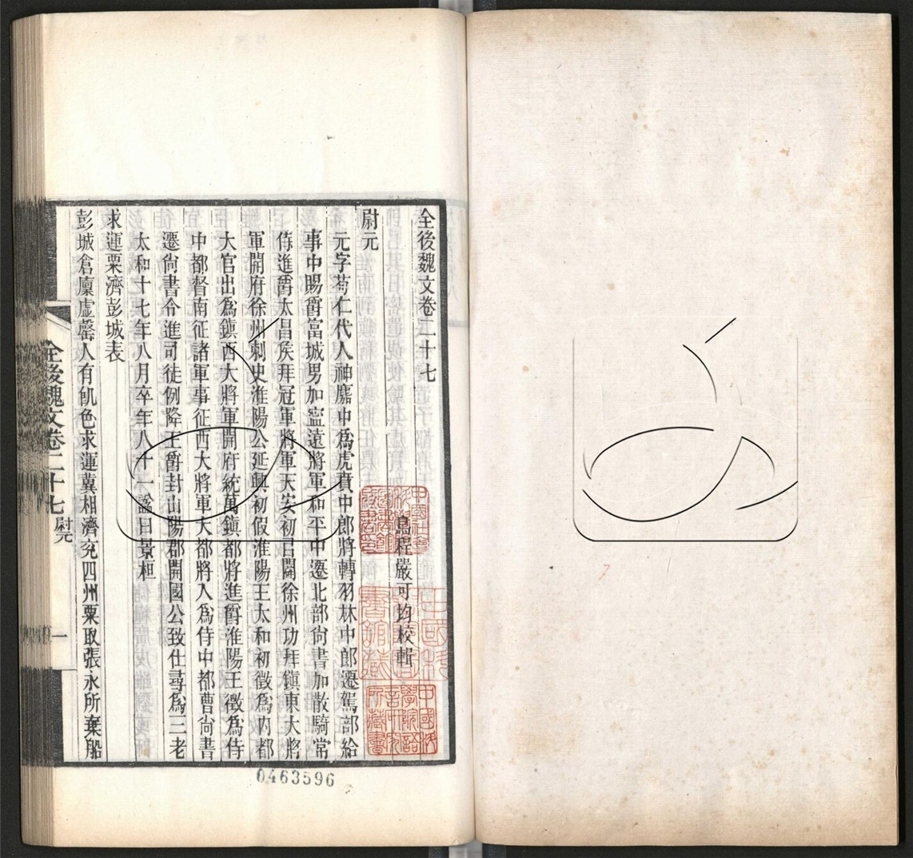 全後魏文卷二十七
烏程嚴可均校輯
尉元
元字苟仁代人神䴥中爲虎賁中郎將轉羽林中郎遷駕部給
事中賜爵富城男加寧遠將軍和平中遷北部尚書加散騎常
侍進爵太昌侯拜冠軍將軍天安初以開徐州功拜鎮東大將
軍開府徐州刺史淮陽公延興初假淮陽王太和初徵爲內都
大官出爲鎮西大將軍開府統萬鎮都將進爵淮陽王徵爲侍
中都督南征諸軍事征西大將軍大都將入爲侍中都曹尚書
遷尚書令進司徒例降王爵封山陽郡開國公致仕尋爲三老
太和十七年八月卒年八十一諡曰景桓
求運粟濟彭城表
彭城倉廩虛罄人有飢色求運冀相濟兗四州粟取張永所棄船
全後魏文卷二十七
尉元
一
0463596